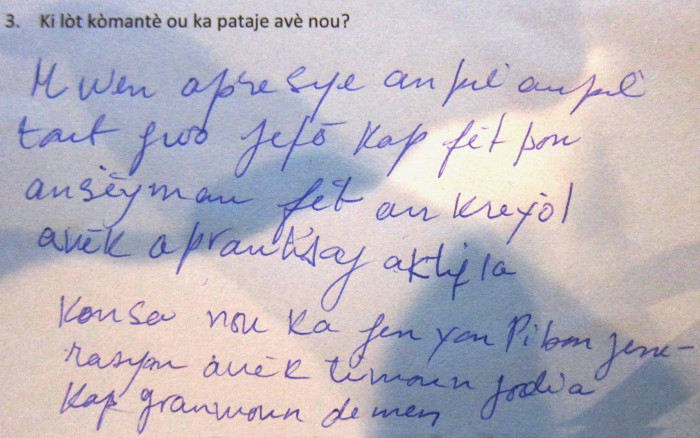 3. Ki lòt kòmantè ou ka pataje avè nou?
Mwen apresye anpil anpil
tout gwo jefò kap fèt pou
ansèyman fèt an kreyòl
avèk aprantisaj aktif la
Konsa nou ka fen yon Pi bon jene-
rasyon avèk timoun jodi a
Kap granmoun demen